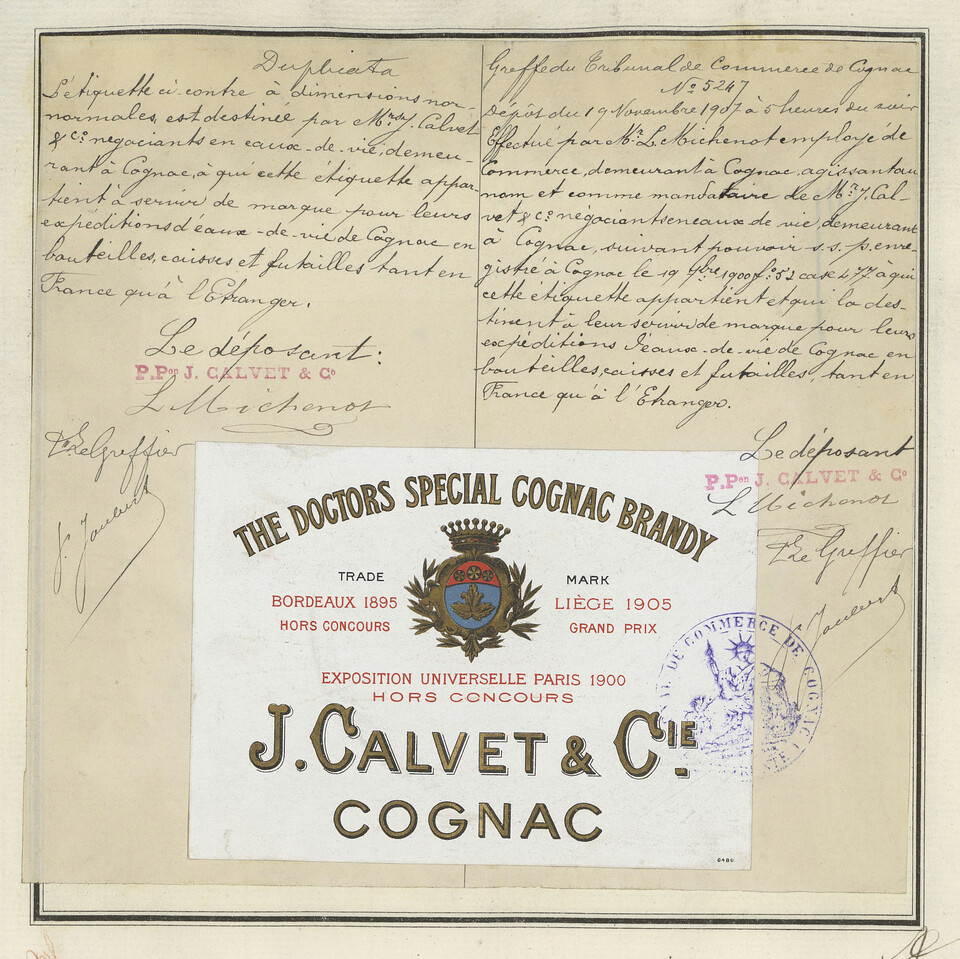 Duplicata
L'étiquette ci contre à dimensions nor-
normales, est destinée par Mrs J. Calvet
& Co négociants en eaux-de-vie, demeu-
rant à Cognac, à qui cette étiquette appar-
tient à servir de marque pour leurs
expéditions d'eaux-de-vie de Cognac en
bouteilles, caisses et futailles tant en
France qu'à l'Etranger.
Le déposant:
P.Pon J. CALVET & Co
L Michenot
Le Greffier
J. Joubert
Greffe du Tribunal de Commerce de Cognac
No 5247
Dépôt du 19 Novembre 1907 à 5 heures du soir
Effectué par Mr L. Michenot employé de
Commerce, demeurant à Cognac, agissant au
nom et comme mandataire de Mrs J. Cal-
vet & Co négociants en eaux de vie, demeurant
à Cognac, suivant pouvoir s.s.p. enre-
gistré à Cognac le 19 9bre 1900 fo 52 case 477 à qui
cette étiquette appartient et qui la des-
tinent à leur servir de marque pour leurs
expéditions d'eaux-de-vie de Cognac en
bouteilles, caisses et futailles, tant en
France qu'à l'Etranger.
Le déposant
P.Pon J. CALVET & Co
L Michenot
Le Greffier
J. Joubert
THE DOCTORS SPECIAL COGNAC BRANDY
TRADE MARK
BORDEAUX 1895 LIÈGE 1905
HORS CONCOURS GRAND PRIX
EXPOSITION UNIVERSELLE PARIS 1900
HORS CONCOURS
J. CALVET & CIE
COGNAC
6480
DE COMMERCE DE COGNAC